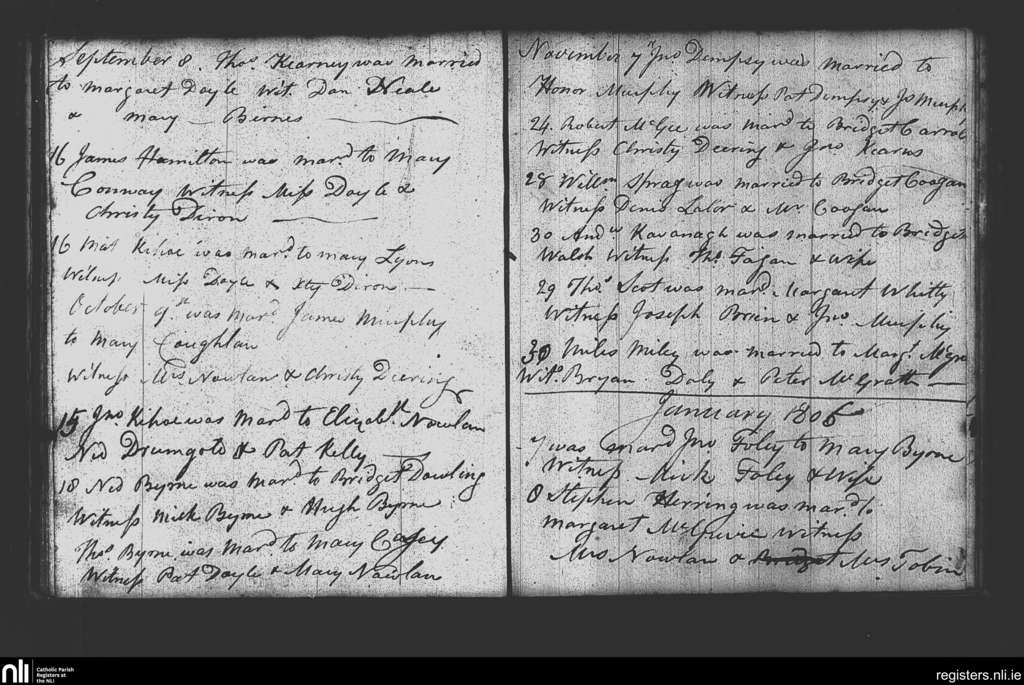 September 8. Thos. Kearney was married
to Margaret Doyle Wit. Dan Neale
& Mary Birnes
16 James Hamilton was mard. to Mary
Conway Witness Miss Doyle &
Christy Dixon
16 Mat Kehoe was mard. to Mary Lyons
Witness Miss Doyle & Xty Dixon
October 9th was mard. James Murphy
to Mary Coughlan
Witness Mrs Nowlan & Christy Deering
15 Jno. Kehoe was Mard to Elizabth. Nowlan
Ned Drumgold & Pat Kelly
18 Ned Byrne was Mard. to Bridget Dowling
Witness Mick Byrne & Hugh Byrne
Thos. Byrne was Mard to Mary Casey
Witness Pat Doyle & Mary Nowlan
November 7th Jno Dempsy was married to
Honor Murphy Witness Pat Dempsy & Js Murph
24. Robert McGee was mard. to Bridget Carrol
Witness Christy Deering & Jno Kearns
28 Willm Sprag was married to Bridget Coogan
Witness Denis Lalor & Mr Coogan
30 Andw Kavanagh was married to Bridget
Walsh Witness Ths. Fagan & wife
29 Thos. Scot was mard. Margaret Whitty
Witness Joseph & Jno. Murphy
30 Miles Miley was married to Margt. McGra
Wits. Bryan Doly & Peter McGrath
January 1806
7 was mard Jno Foley to Mary Byrne
Witness Mick Foley & Wife
8 Stephen Herring was mard. to
Margaret McGuire witness
Mrs Nowlan & Bridget Mrs Tobin
nli
Catholic Parish
Registers at
the NLI
registers.nli.ie